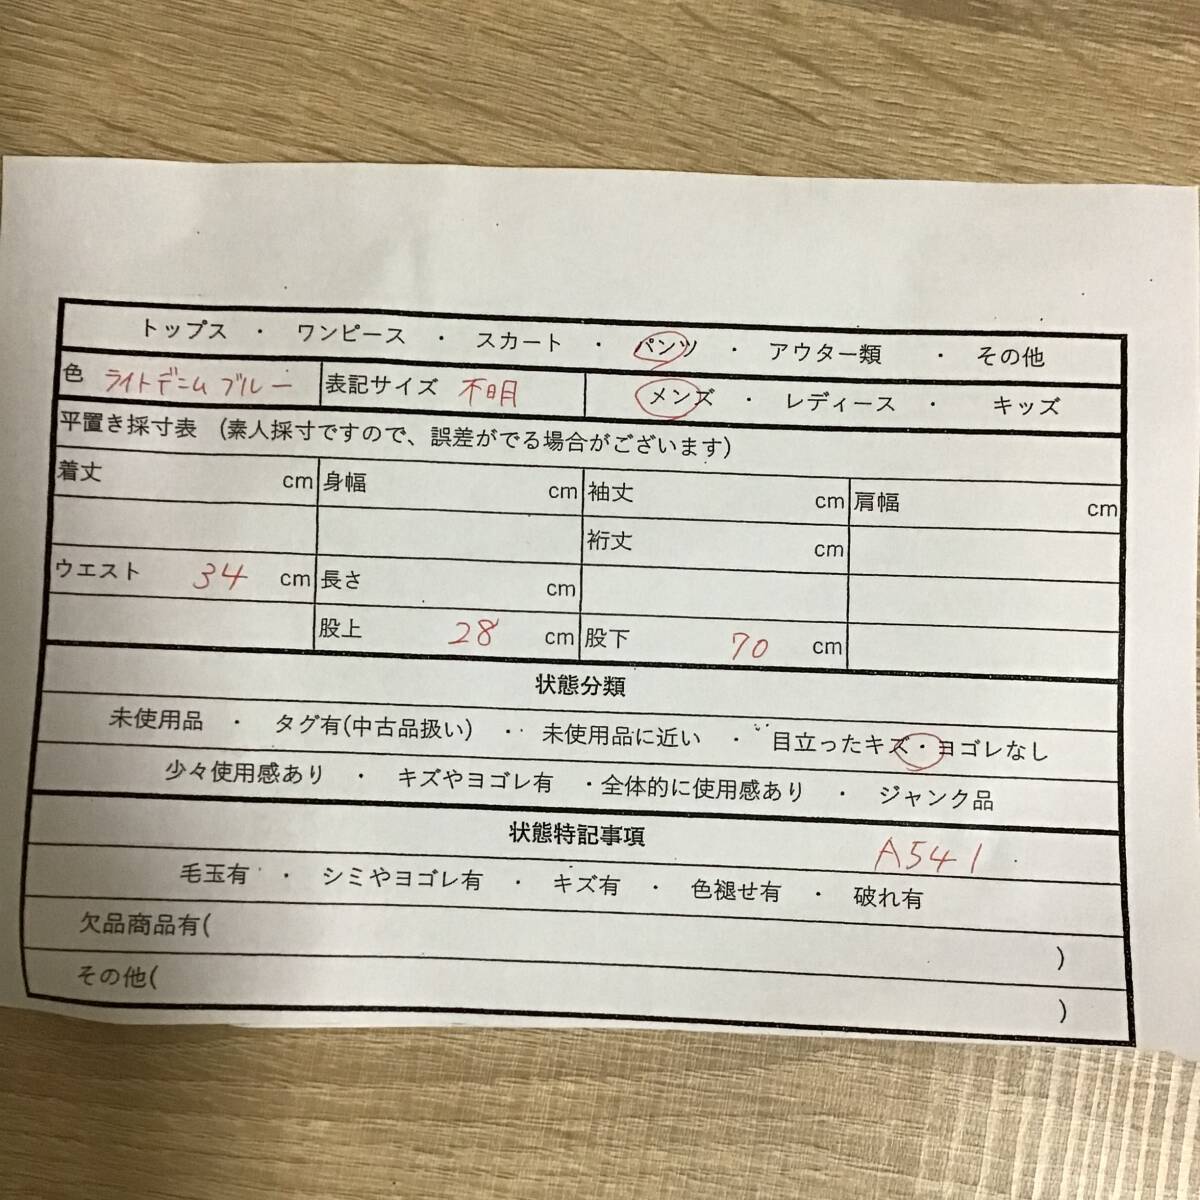 トップス ・ ワンピース ・ スカート ・ パンツ ・ アウター類 ・ その他
色 ライトデニムブルー 表記サイズ 不明 メンズ ・ レディース ・ キッズ
平置き採寸表 (素人採寸ですので、誤差がでる場合がございます)
着丈 cm 身幅 cm 袖丈 cm 肩幅 cm
裄丈 cm
ウエスト 34 cm 長さ cm
股上 28 cm 股下 70 cm
状態分類
未使用品 ・ タグ有(中古品扱い) ・ 未使用品に近い ・ 目立ったキズ・ヨゴレなし
少々使用感あり ・ キズやヨゴレ有 ・全体的に使用感あり ・ ジャンク品
状態特記事項 A541
毛玉有 ・ シミやヨゴレ有 ・ キズ有 ・ 色褪せ有 ・ 破れ有
欠品商品有( )
その他( )